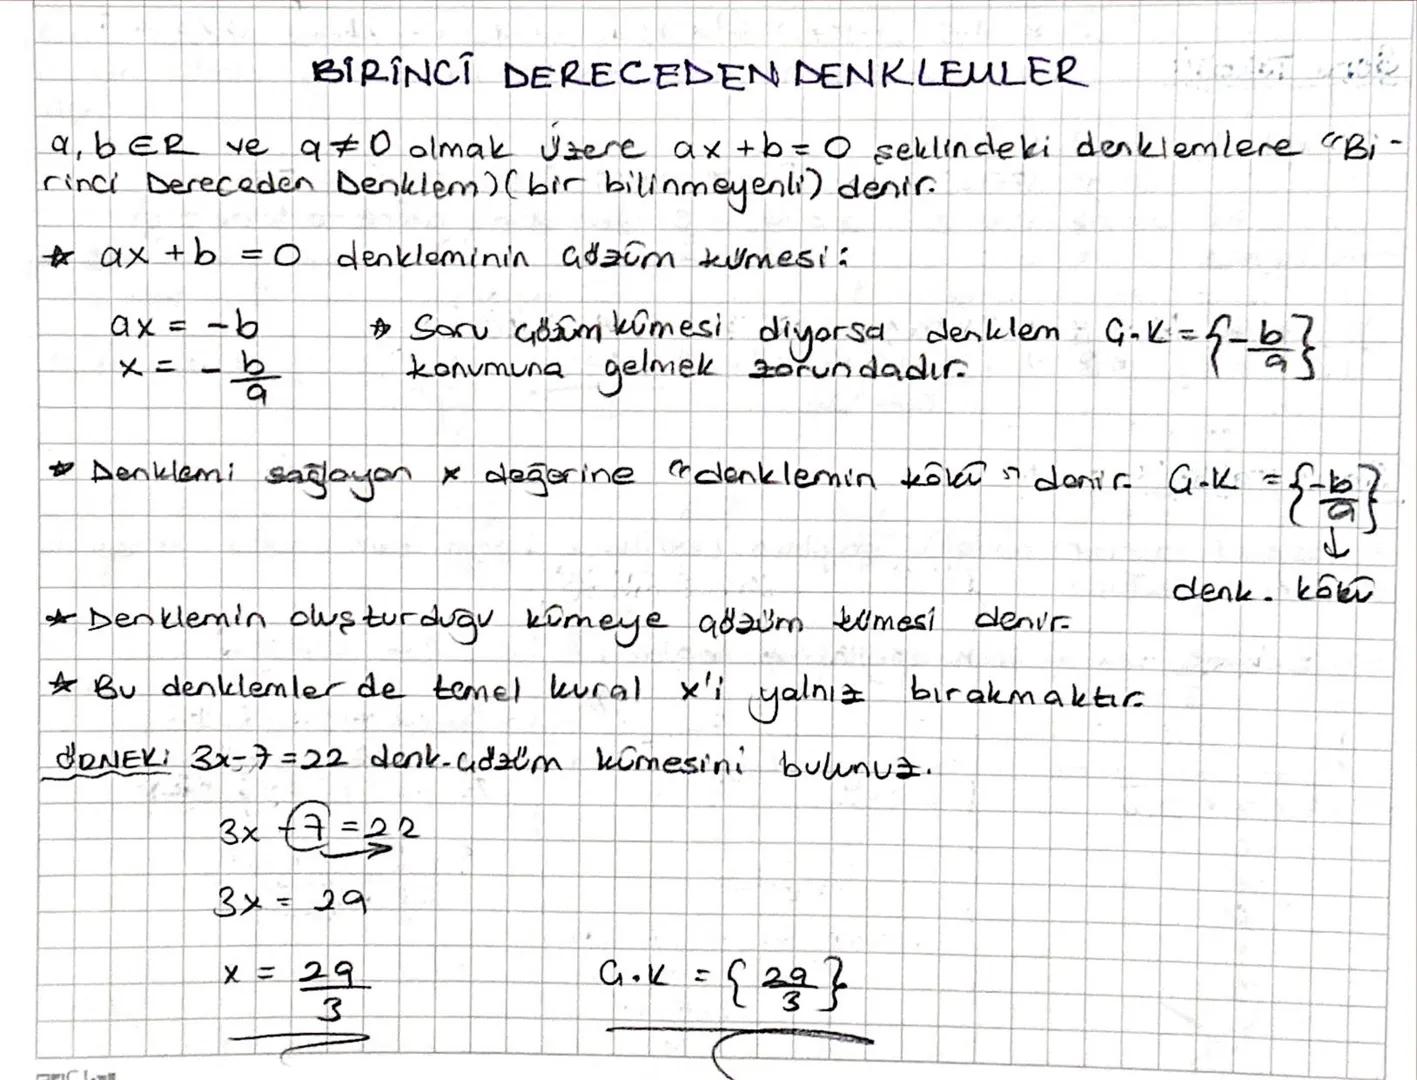 BİRİNCİ DERECEDEN DENKLEMLER
a, b ∈ R ve a ≠ 0 olmak üzere ax + b = 0 şeklindeki denklemlere "Bi-
rinci Dereceden Denklem" (bir bilinmeyenli) denir.
* ax + b = 0 denkleminin çözüm kümesi:
ax = -b
x = - b/a
* Soru çözüm kümesi diyorsa denklem Ç.K = {- b/a}
konumuna gelmek zorundadır.
* Denklemi sağlayan x değerine "denklemin kökü" denir. Ç.K = {-b/a}
↓
denk. kökü
* Denklemin oluşturduğu kümeye çözüm kümesi denir.
* Bu denklemler de temel kural x'i yalnız bırakmaktır.
ÖRNEK: 3x-7=22 denk. çözüm kümesini bulunuz.
3x -7 = 22
3x = 29
x = 29/3
Ç.K = {29/3}